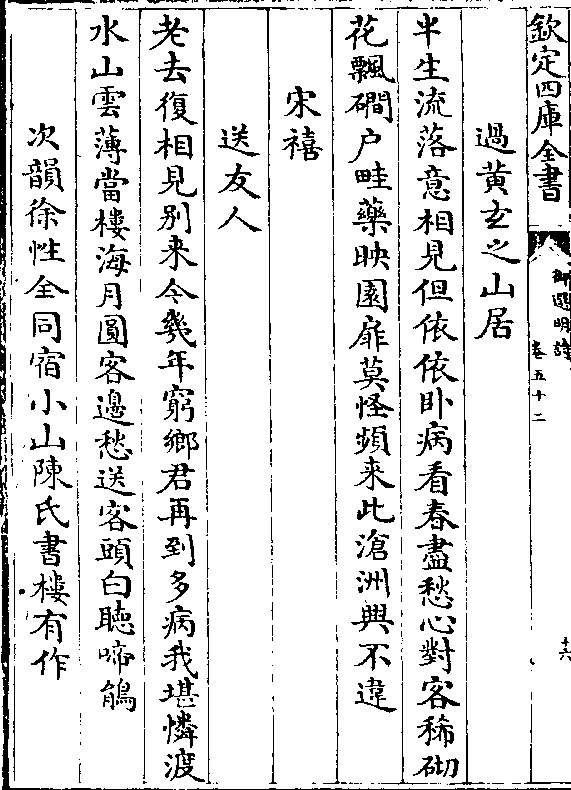 欽定四庫全書
御選明詩
卷五十二
十六
過黄玄之山居
半生流落意相見但依依卧病看春盡愁心對客稀砌
花飄磵户畦藥映園扉莫怪頻来此滄洲興不違
宋禧
送友人
老去復相見别来今幾年窮鄉君再到多病我堪憐渡
水山雲薄當樓海月圓客邊愁送客頭白聽啼鵑
次韻徐性全同宿小山陳氏書樓有作